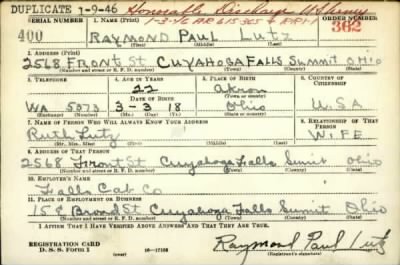 DUPLICATE 1-9-46 Honorable Discharge US Army
SERIAL NUMBER 1. NAME (Print) 1-3-46 ORDER NUMBER
400 RAYMOND PAUL LUTZ 362
(First) (Middle) (Last)
2. ADDRESS (Print)
2568 FRONT ST CUYAHOGA FALLS SUMMIT OHIO
(Number and street or R. F. D. number) (Town) (County) (State)
3. TELEPHONE 4. AGE IN YEARS 5. PLACE OF BIRTH 6. COUNTRY OF CITIZENSHIP
22 Akron
DATE OF BIRTH
WA 5073 3-3-18 Ohio U.S.A
(Exchange) (Number) (Mo.) (Day) (Yr.) (State or country)
7. NAME OF PERSON WHO WILL ALWAYS KNOW YOUR ADDRESS 8. RELATIONSHIP OF THAT PERSON
Ruth Lutz WIFE
(Mr., Mrs., Miss) (First) (Middle) (Last)
9. ADDRESS OF THAT PERSON
2568 Front St Cuyahoga Falls Sumit Ohio
(Number and street or R. F. D. number) (Town) (County) (State)
10. EMPLOYER'S NAME
Falls Cab Co
11. PLACE OF EMPLOYMENT OR BUSINESS
Broad St Cuyahoga Falls Sumit Ohio
(Number and street or R. F. D. number) (Town) (County) (State)
I AFFIRM THAT I HAVE VERIFIED ABOVE ANSWERS AND THAT THEY ARE TRUE.
REGISTRATION CARD
D. S. S. Form 1 16-17105 Raymond Paul Lutz
(Registrant's signature)